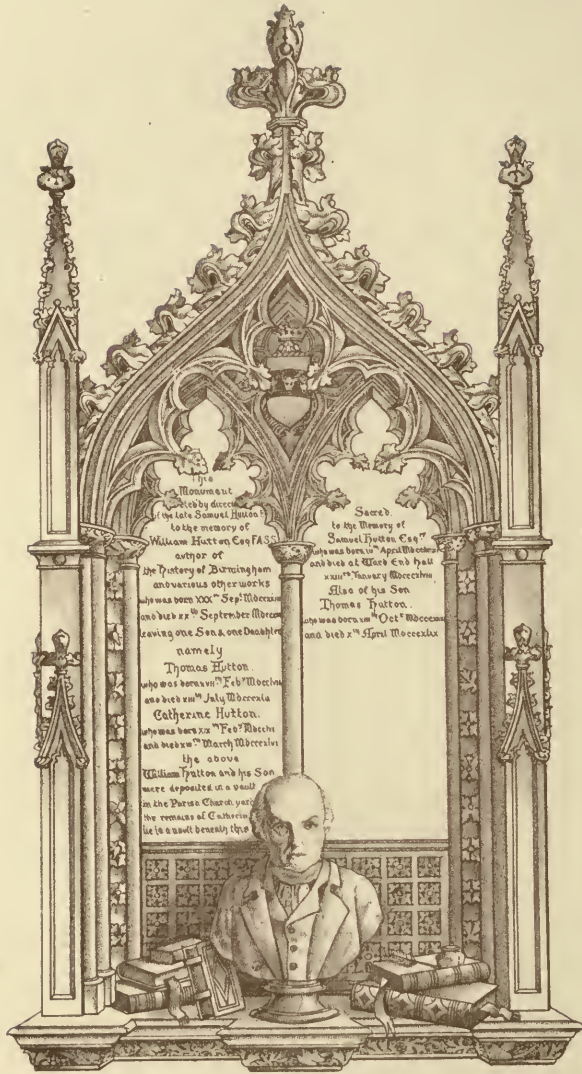 This
Monument
by direc
of the late Samuel Hutton
to the memory of
William Hutton Esq FASS
author of
the History of Birmingham
and various other works
who was born XXXth Sepr
and died xxth September
leaving one Son & one Daughter
namely
Thomas Hutton.
who was born Feby
and died xiiith July Mdcccxlv
Catherine Hutton.
who was born xixth Feby
and died March Mdcccxlvi
the above
William Hutton and his Son
were deposited in a vault
in the Parish Church yar
the remains of Catherin
lie in a vault beneath this
Sacred
to the Memory of
Samuel Hutton Esqre
who was born April
and died at Ward End Hall
January
Also of his Son
Thomas Hutton.
who was born Octr
and died xth April Mdcccxlix